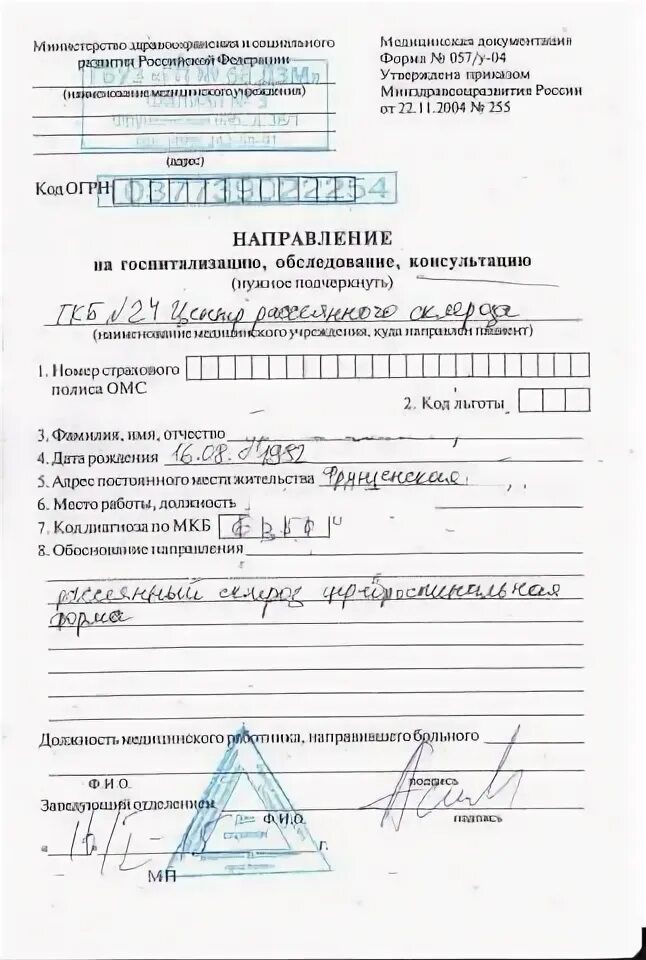 Министерство здравоохранения и социального
развития Российской Федерации
(наименование медицинского учреждения)
(адрес)
Код ОГРН 037739022254
Медицинская документация
Форма № 057/у-04
Утверждена приказом
Минздравсоцразвития России
от 22.11.2004 № 255
НАПРАВЛЕНИЕ
на госпитализацию, обследование, консультацию
(нужное подчеркнуть)
ГКБ №24 Центр рассеянного склероза
(наименование медицинского учреждения, куда направлен пациент)
1. Номер страхового
полиса ОМС
2. Код льготы
3. Фамилия, имя, отчество
4. Дата рождения 16.08.
5. Адрес постоянного места жительства
6. Место работы, должность
7. Код диагноза по МКБ
8. Обоснование направления
рассеянный склероз цереброспинальная
форма
Должность медицинского работника, направившего больного
Ф.И.О. подпись
Заведующий отделением
Ф.И.О. подпись
г.
МП